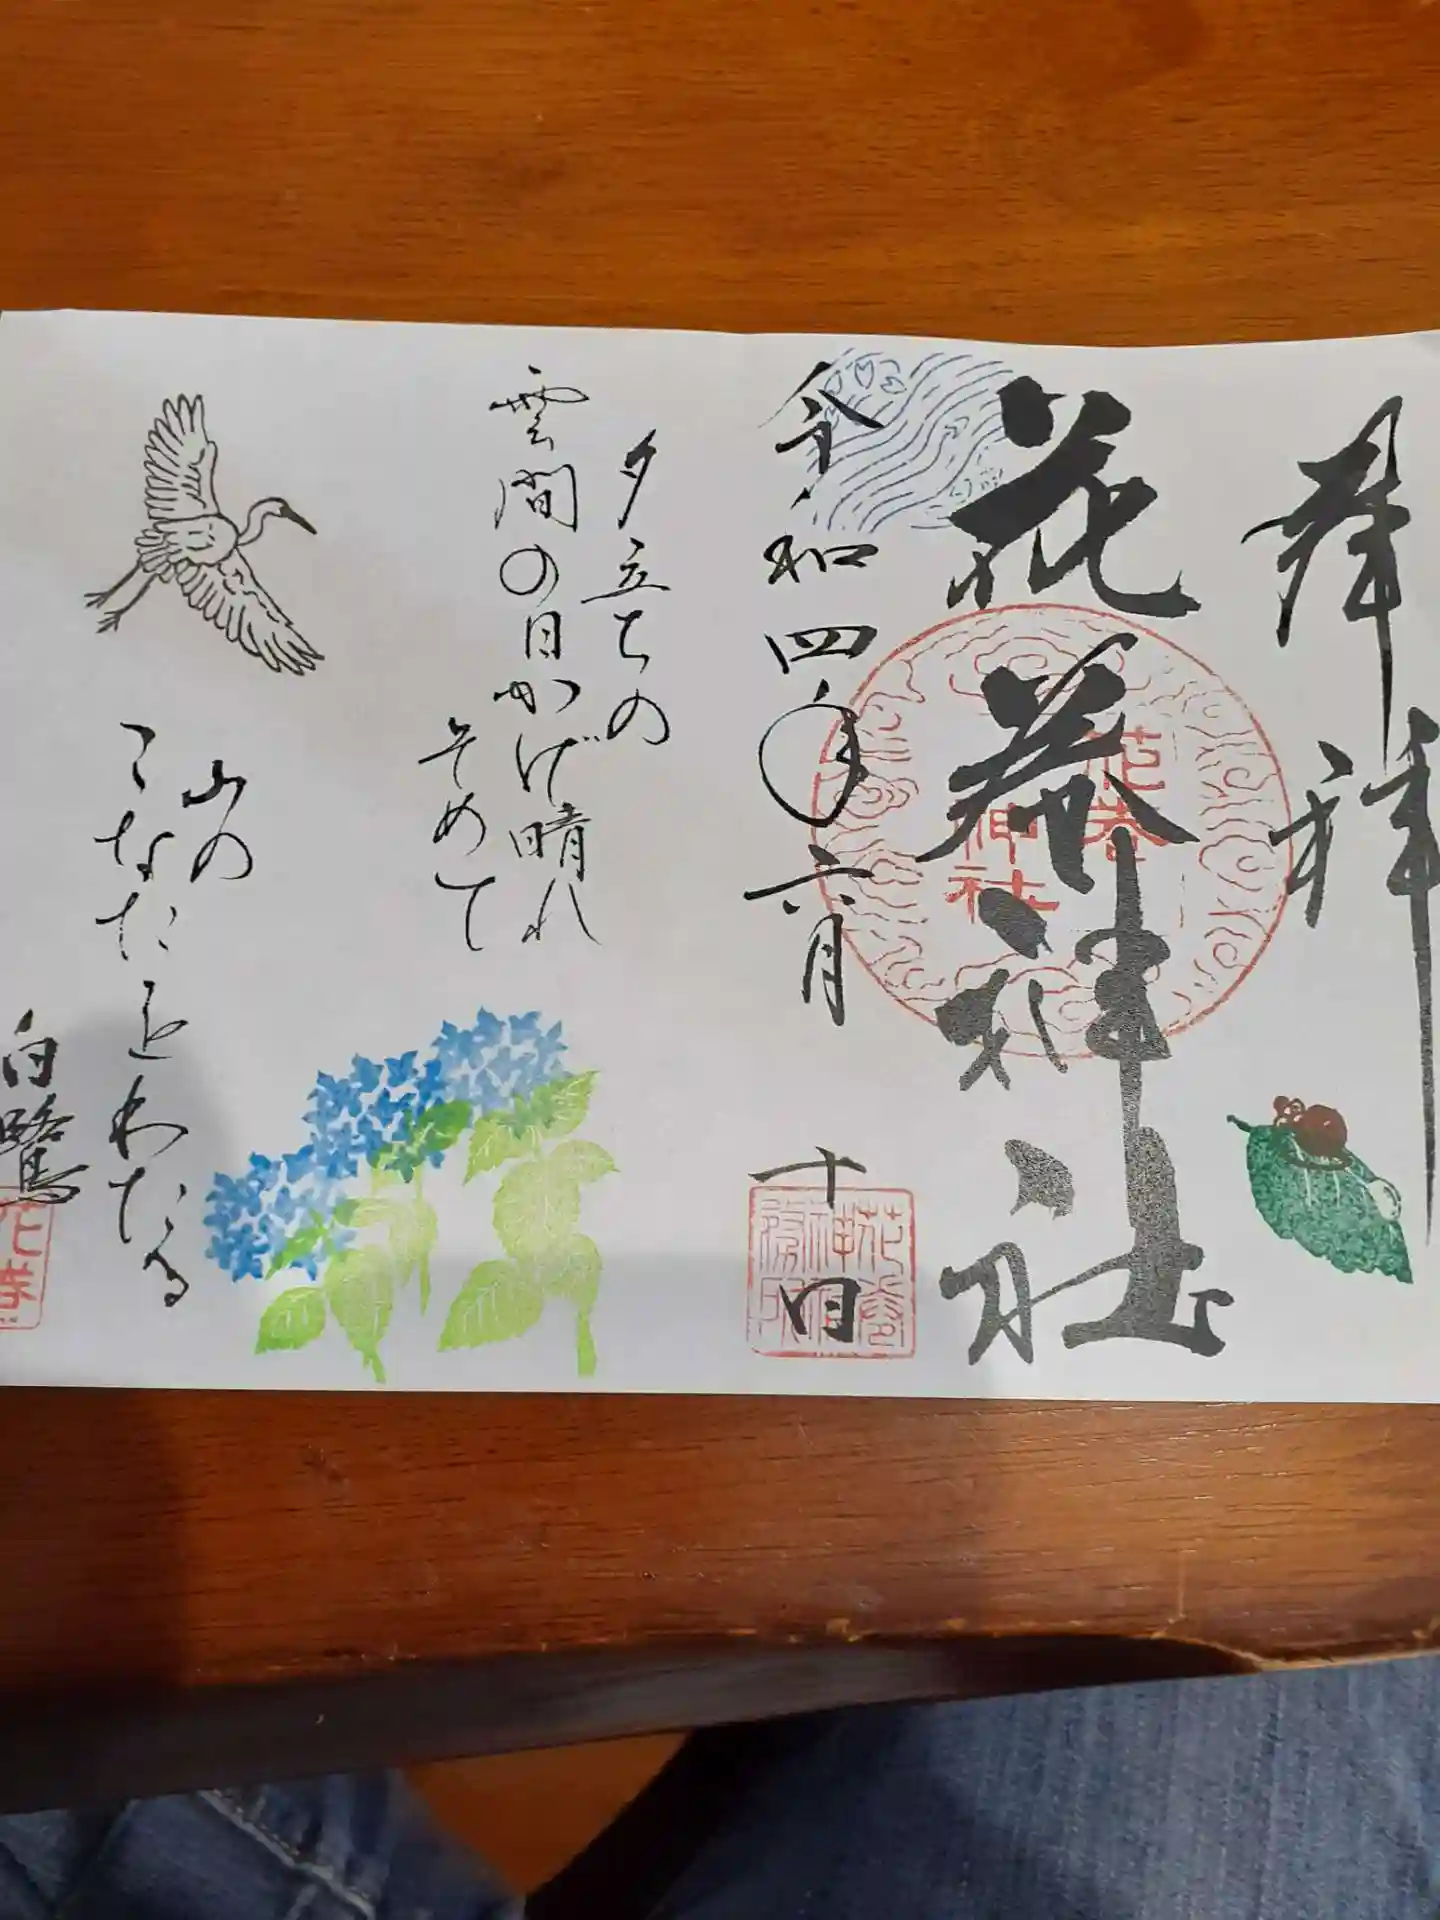 奉拝
花巻神社
花巻
神社
令和四年六月十日
夕立ちの
雲間の日かげ晴れ
そめて
山の
こなたをわたる
白鷺